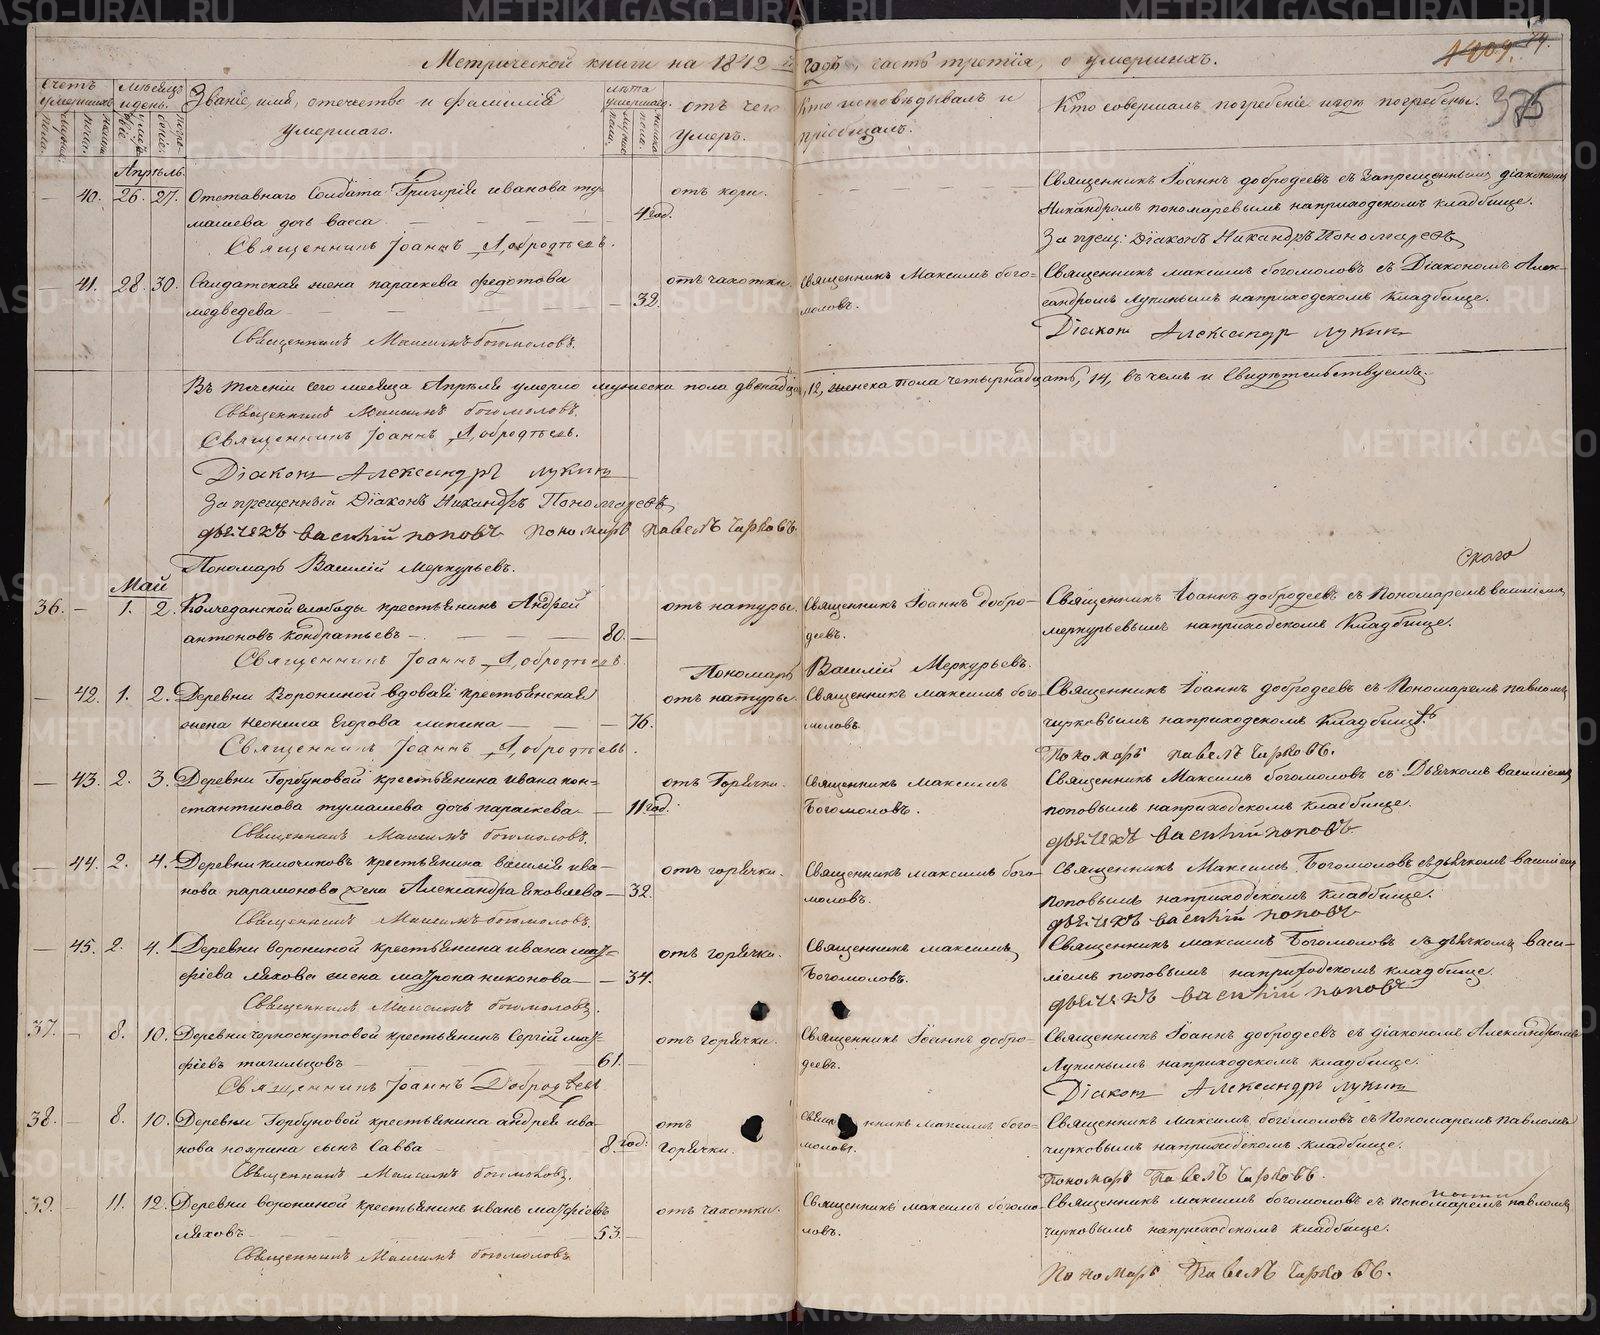 Метрической книги на 1842 й годъ, часть третія, о умершихъ.
Счетъ умершихъ.
Мѣсяцъ и день.
Званіе, имя, отечество и фамилія
умершаго.
Лѣта умершаго.
отъ чего
умеръ.
Кто исповѣдывалъ и
пріобщалъ.
Кто совершалъ погребеніе и гдѣ погребены.
375
Апрѣль.
— 40. 26. 27. Отставнаго Солдата Григорія иванова ту-
машева дочь васса 4 год.
отъ кори.
Священникъ Іоаннъ добродеевъ съ Запрещеннымъ діакономъ
Никандромъ пономаревымъ наприходскомъ кладбище.
Священникъ Іоаннъ Добродѣевъ.
Запрещ: Діаконъ Никандръ Пономаревъ
— 41. 28. 30. Салдатская жена параскева федотова
медведева — 32.
отъ чахотки.
Священникъ Максимъ бого-
моловъ.
Священникъ максимъ богомоловъ съ Діакономъ Алек-
сандромъ лукинымъ наприходскомъ кладбище.
Священникъ Максимъ богомоловъ.
Діаконъ Александръ лукинъ
Въ теченіи сего месяца Апрѣля умерло мужеска пола двенадцать, 12, женска пола четырнадцать, 14, въ чемъ и Свидѣтельствуемъ.
Священникъ Максимъ богомоловъ.
Священникъ Іоаннъ Добродѣевъ.
Діаконъ Александръ лукинъ
Запрещенный Діаконъ Никандръ Пономаревъ
дьячекъ василій поповъ пономарь павелъ Чирковъ
Пономарь Василій Меркурьевъ.
Май
36. — 1. 2. Колчеданской слободы крестьянинъ Андрей
антоновъ кондратьевъ — 80. —
отъ натуры.
Священникъ Іоаннъ добро-
деевъ.
Священникъ Іоаннъ добродеевъ съ Пономаремъ василіемъ
меркурьевымъ наприходскомъ кладбище.
Священникъ Іоаннъ Добродѣевъ.
Пономарь Василій Меркурьевъ.
— 42. 1. 2. Деревни Ворониной вдовая крестьянская
жена неонила Егорова липина — 76.
отъ натуры.
Священникъ максимъ бого-
моловъ.
Священникъ Іоаннъ добродеевъ съ Пономаремъ павломъ
чирковымъ наприходскомъ кладбищѣ
Священникъ Іоаннъ Добродѣевъ.
Пономарь павелъ Чирковъ.
— 43. 2. 3. Деревни Горбуновой крестьянина ивана кон-
стантинова тумашева дочь параскева — 11 год.
отъ Горячки.
Священникъ максимъ
Богомоловъ.
Священникъ Максимъ богомоловъ съ Дьячкомъ василіемъ
поповымъ наприходскомъ кладбище.
Священникъ Максимъ богомоловъ.
дьячекъ василій поповъ
— 44. 2. 4. Деревни ключиковъ крестьянина василія ива-
нова парамонова жена Александра яковлева — 32.
отъ горячки.
Священникъ максимъ бого-
моловъ.
Священникъ Максимъ Богомоловъ съдьячкомъ василіемъ
поповымъ наприходскомъ кладбище.
Священникъ Максимъ богомоловъ.
дьячекъ василій поповъ
— 45. 2. 4. Деревни ворониной крестьянина ивана мау-
фіева ляхова жена матрона никонова — 34.
отъ горячки.
Священникъ максимъ
Богомоловъ.
Священникъ максимъ Богомоловъ съдьячкомъ васи-
ліемъ поповымъ наприходскомъ кладбище.
Священникъ Максимъ богомоловъ.
дьячекъ василій поповъ
37. — 8. 10. Деревни черноскутовой крестьянинъ Сергій мау-
фіевъ тагильцовъ 61. —
отъ горячки.
Священникъ Іоаннъ добро-
деевъ.
Священникъ Іоаннъ добродеевъ съ діакономъ Александромъ
Лукинымъ наприходскомъ кладбище.
Священникъ Іоаннъ Добродѣевъ
Діаконъ Александръ лукинъ
38. — 8. 10. Деревни Горбуновой крестьянина андрея ива-
нова сынъ Савва 8. год:
отъ
Горячки.
Священникъ максимъ бого-
моловъ.
Священникъ максимъ богомоловъ съ Пономаремъ павломъ
чирковымъ наприходскомъ кладбище.
Священникъ Максимъ богомоловъ.
Пономарь Павелъ Чирковъ.
39. — 11. 12. Деревни ворониной крестьянинъ иванъ мауфіевъ
ляховъ 53. —
отъ чахотки.
Священникъ максимъ богомо-
ловъ.
Священникъ максимъ богомоловъ съ пономаремъ павломъ
чирковымъ наприходскомъ кладбище.
Священникъ Максимъ богомоловъ
Пономарь Павелъ Чирковъ.
METRIKI.GASO-URAL.RU